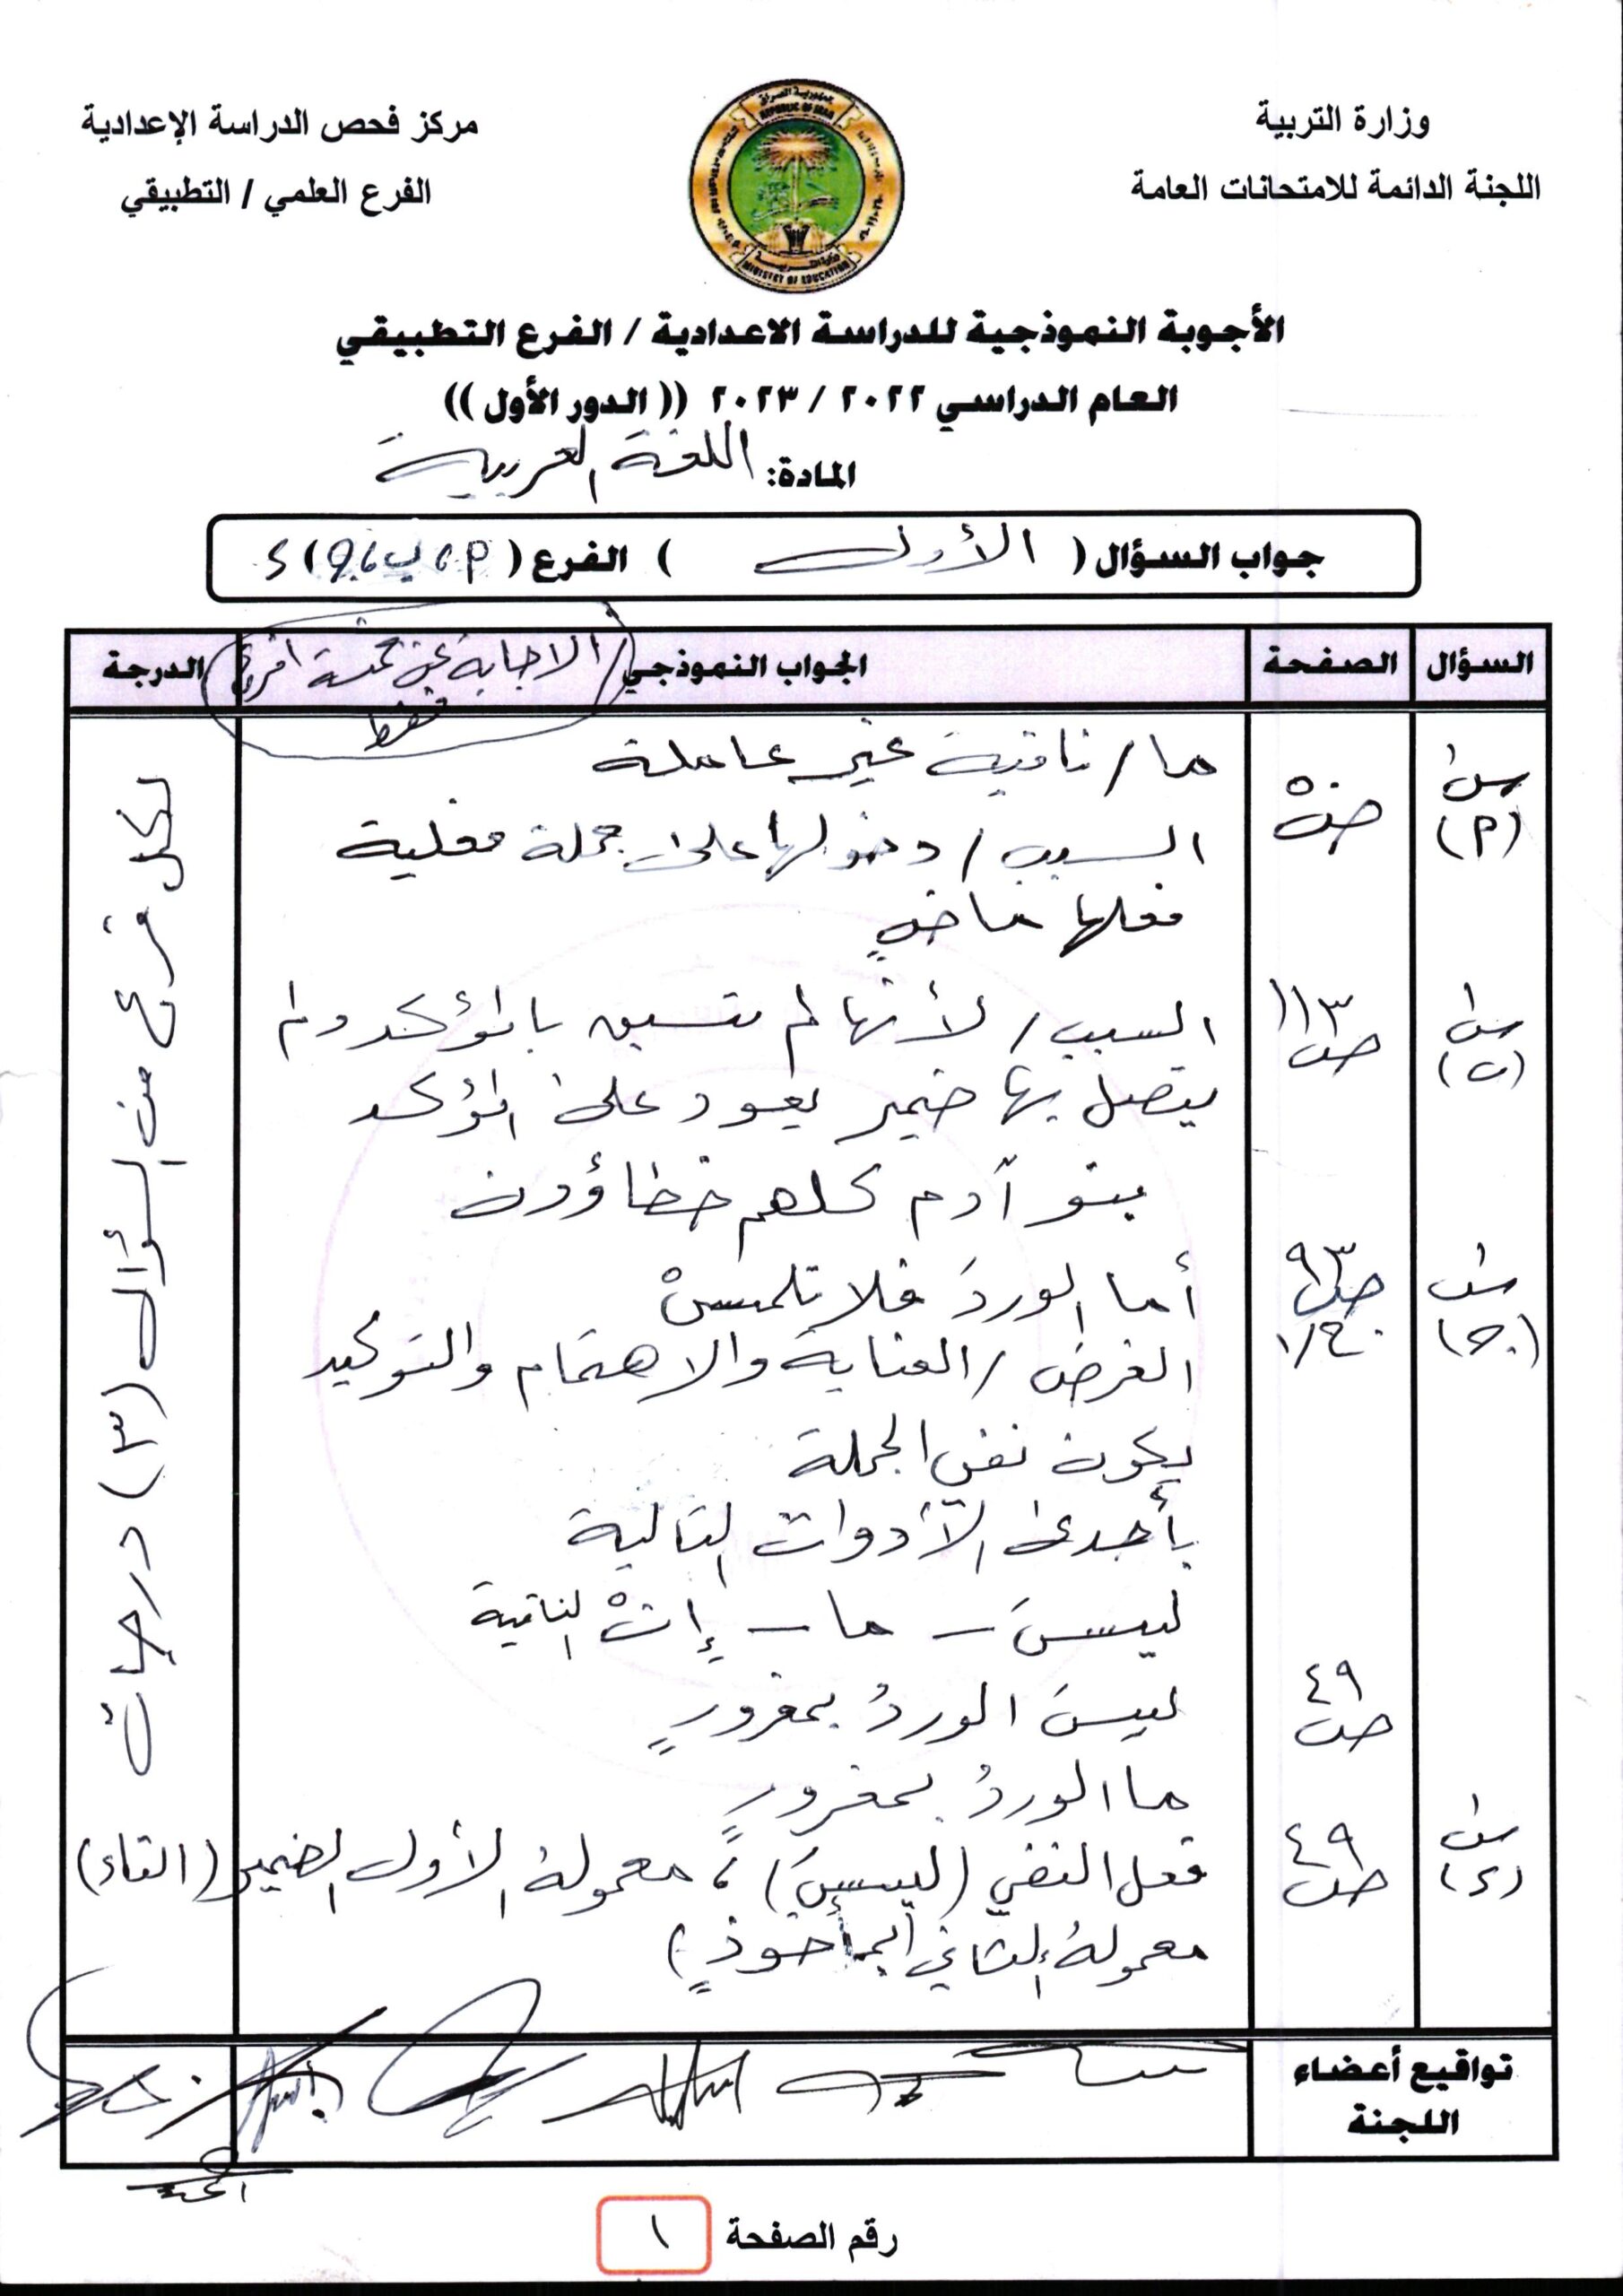 وزارة التربية
اللجنة الدائمة للامتحانات العامة
مركز فحص الدراسة الإعدادية
الفرع العلمي / التطبيقي
جمهورية العراق
REPUBLIC OF IRAQ
وزارة التربية
MINISTRY OF EDUCATION
الأجوبة النموذجية للدراسة الاعدادية / الفرع التطبيقي
العام الدراسي ٢٠٢٢ / ٢٠٢٣ (( الدور الأول ))
المادة: اللغة العربية
جواب السؤال ( الأول ) الفرع ( م، ب، ج ) د
السؤال الصفحة الجواب النموذجي / الاجابة عن خمسة افرع فقط الدرجة
س١ (م) ص٥٠ ما / نافية غير عاملة
السبب / دخولها على جملة فعلية
فعلها ماضٍ
س١ (ب) ص١١٣ السبب / لأنها لم تسبق بالمؤكد ولم
يتصل بها ضمير يعود على المؤكد
بنو آدم كلهم خطاؤون
س١ (ج) ص٩٣ ١/ج أما الوردَ فلا تلمسْ
الغرض / العناية والاهتمام والتوكيد
يكون نفي الجملة
بأحدى الأدوات التالية
ليسَ - ما - إنْ النافية
ص٤٩ ليسَ الوردُ بمغرورٍ
ما الوردُ بمغرورٍ
س١ (د) ص٤٩ فعل النفي (ليسَ) ، معموله الأول الضمير (التاء)
معموله الثاني (بمأخوذٍ)
لكل فرع من السؤال (٣) درجات
تواقيع أعضاء
اللجنة
رقم الصفحة ١